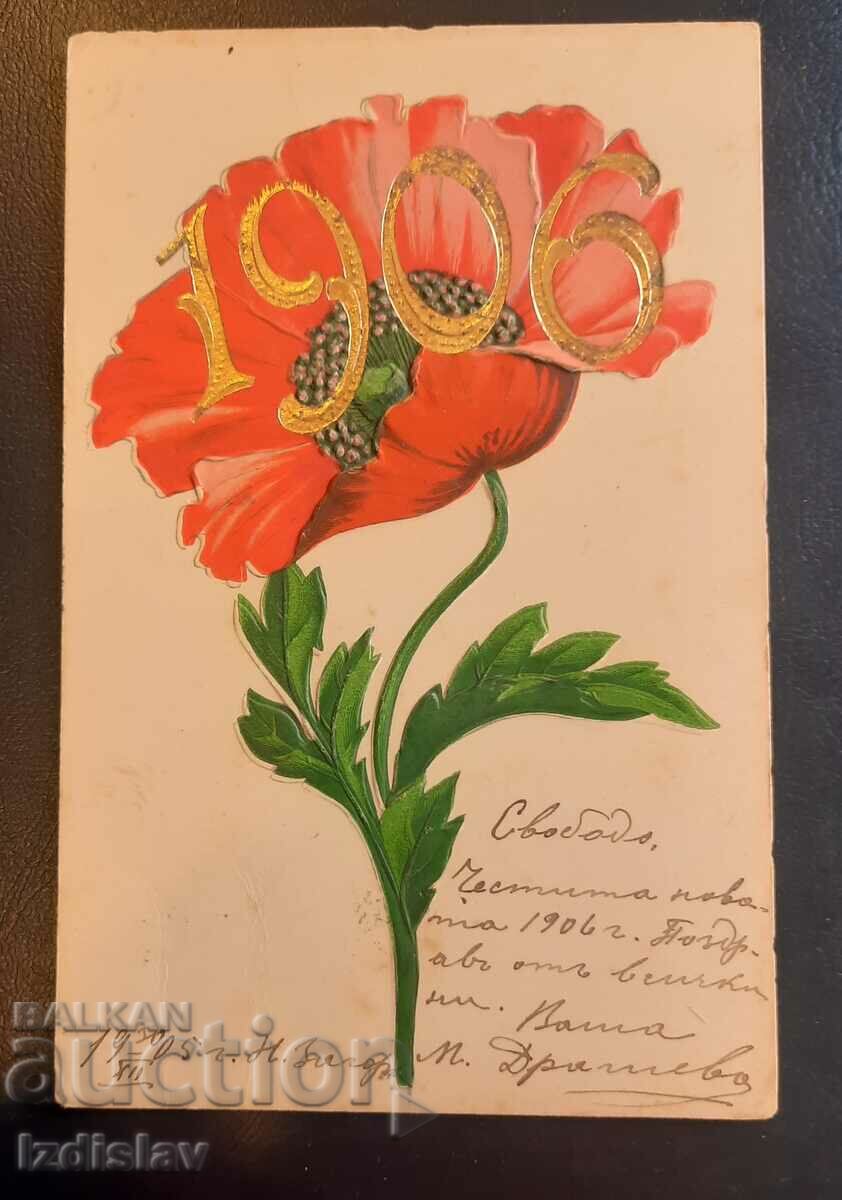 1906
Свободо,
Честита нова-
та 1906 г. Поздр-
авъ отъ всички
ни. Ваша
М. Драшева
19 30/XII 05 г. Н. Загора
BALKAN
auction
Izdislav